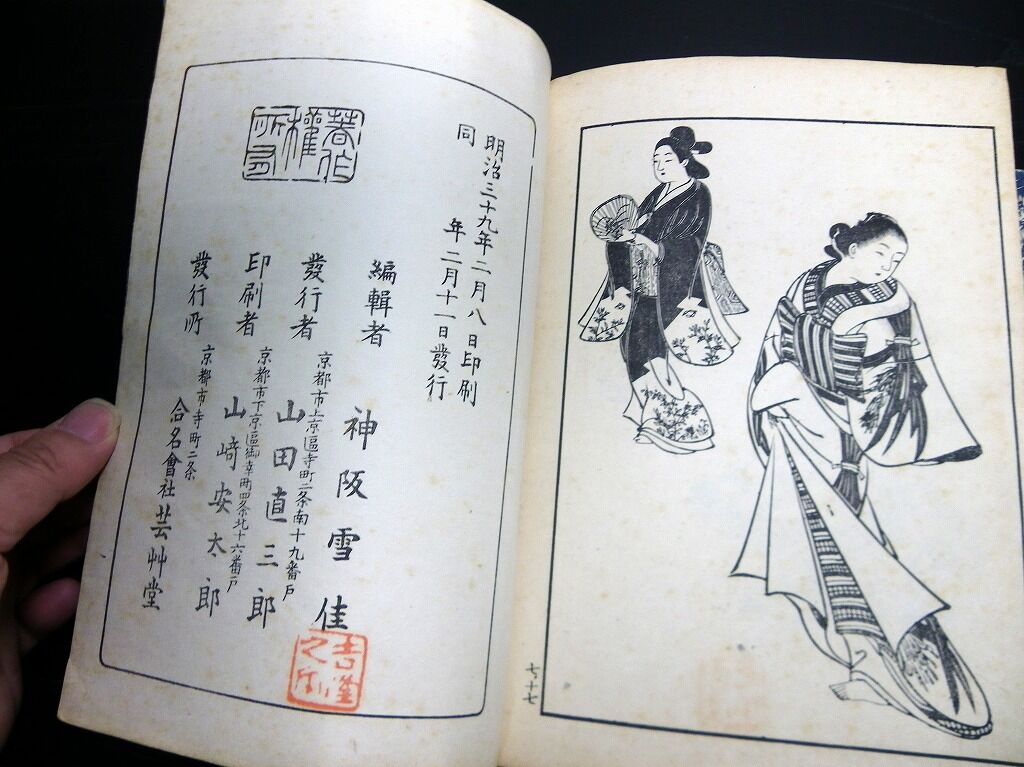 明治三十九年二月八日印刷
同　年二月十一日發行
編輯者　神阪雪佳
京都市上京區寺町二条南十九番戸
發行者　山田直三郎
京都市下京區御幸町四条北十六番戸
印刷者　山﨑安太郎
京都市寺町二条
發行所　合名會社芸艸堂
著作權所有
七ノ十七